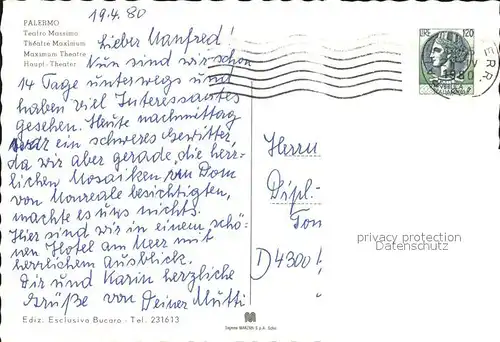 19.4.80
PALERMO
Teatro Massimo
Théatre Maximum
Maximum Theatre
Haupt-Theater
Lieber Manfred!
Nun sind wir schon
14 Tage unterwegs und
haben viel Interessantes
gesehen. Heute nachmittag
war ein schweres Gewitter,
da wir aber gerade die herr-
lichen Mosaiken von Dom
von Monreale besichtigten,
machte es uns nichts.
Hier sind wir in einem schö-
nen Hotel am Meer mit
herrlichem Ausblick.
Dir und Karin herzliche
Grüße von Deiner Mutti
Ediz. Esclusiva Bucaro - Tel. 231613
LIRE 120
1980
Herrn
Dipl.-
Tom
D 4300
privacy protection
Datenschutz